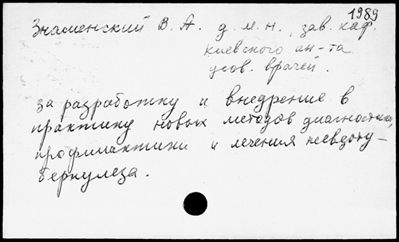 1989
Знаменский В. А. д. м. н., зав. каф.
киевского ин-та
усов. врачей.
за разработку и внедрение в
практику новых методов диагностики,
профилактики и лечения псевдоту-
беркулеза.